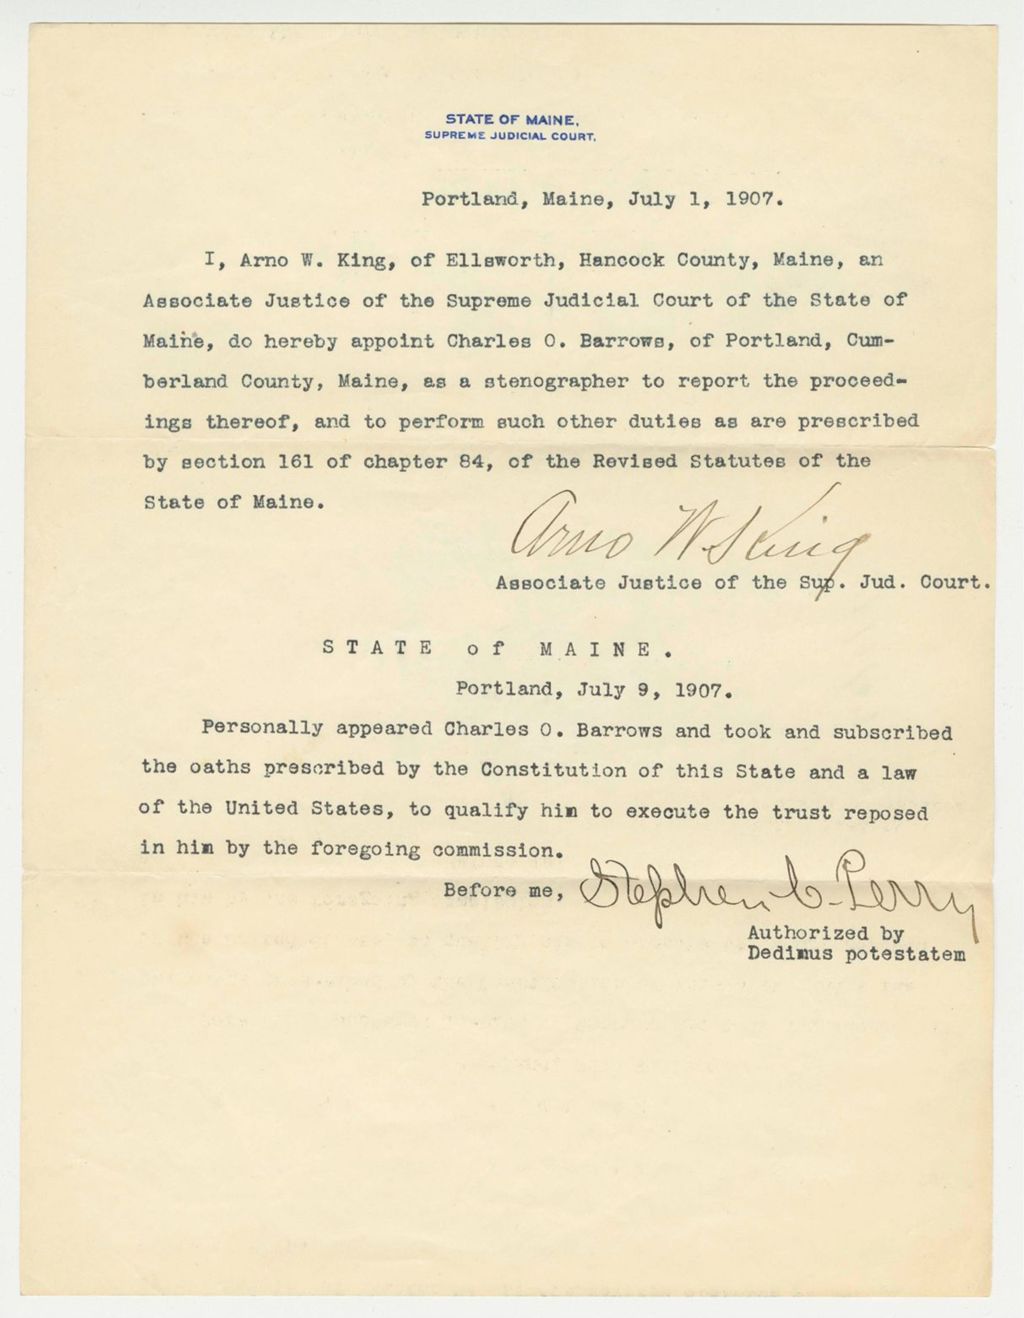 STATE OF MAINE,
SUPREME JUDICIAL COURT.
Portland, Maine, July 1, 1907.
I, Arno W. King, of Ellsworth, Hancock County, Maine, an
Associate Justice of the Supreme Judicial Court of the State of
Maine, do hereby appoint Charles O. Barrows, of Portland, Cum-
berland County, Maine, as a stenographer to report the proceed-
ings thereof, and to perform such other duties as are prescribed
by section 161 of chapter 84, of the Revised Statutes of the
State of Maine.
Arno W. King
Associate Justice of the Sup. Jud. Court.
STATE of MAINE.
Portland, July 9, 1907.
Personally appeared Charles O. Barrows and took and subscribed
the oaths prescribed by the Constitution of this State and a law
of the United States, to qualify him to execute the trust reposed
in him by the foregoing commission.
Before me, Stephen C. Perry
Authorized by
Dedimus potestatem